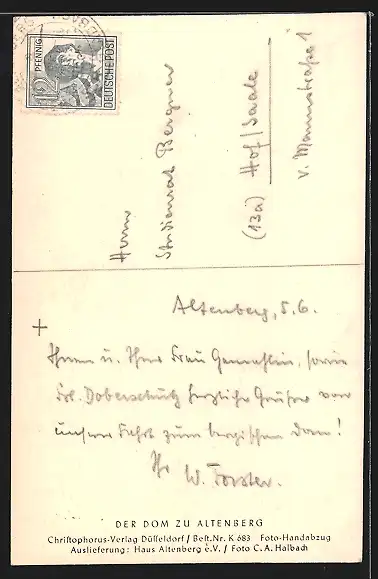 12 PFENNIG
DEUTSCHE POST
Herrn
Studienrat Bergner
(13a) Hof/Saale
v. Mannstraße 1
Altenberg, 5.6.
Ihnen u. Ihrer Frau Gemahlin, sowie
Frl. Doberschütz herzliche Grüße von
unserer Fahrt zum bergischen Dom!
Ihr W. Forster.
DER DOM ZU ALTENBERG
Christophorus-Verlag Düsseldorf / Best.Nr. K 683 Foto-Handabzug
Auslieferung: Haus Altenberg e.V. / Foto C. A. Halbach